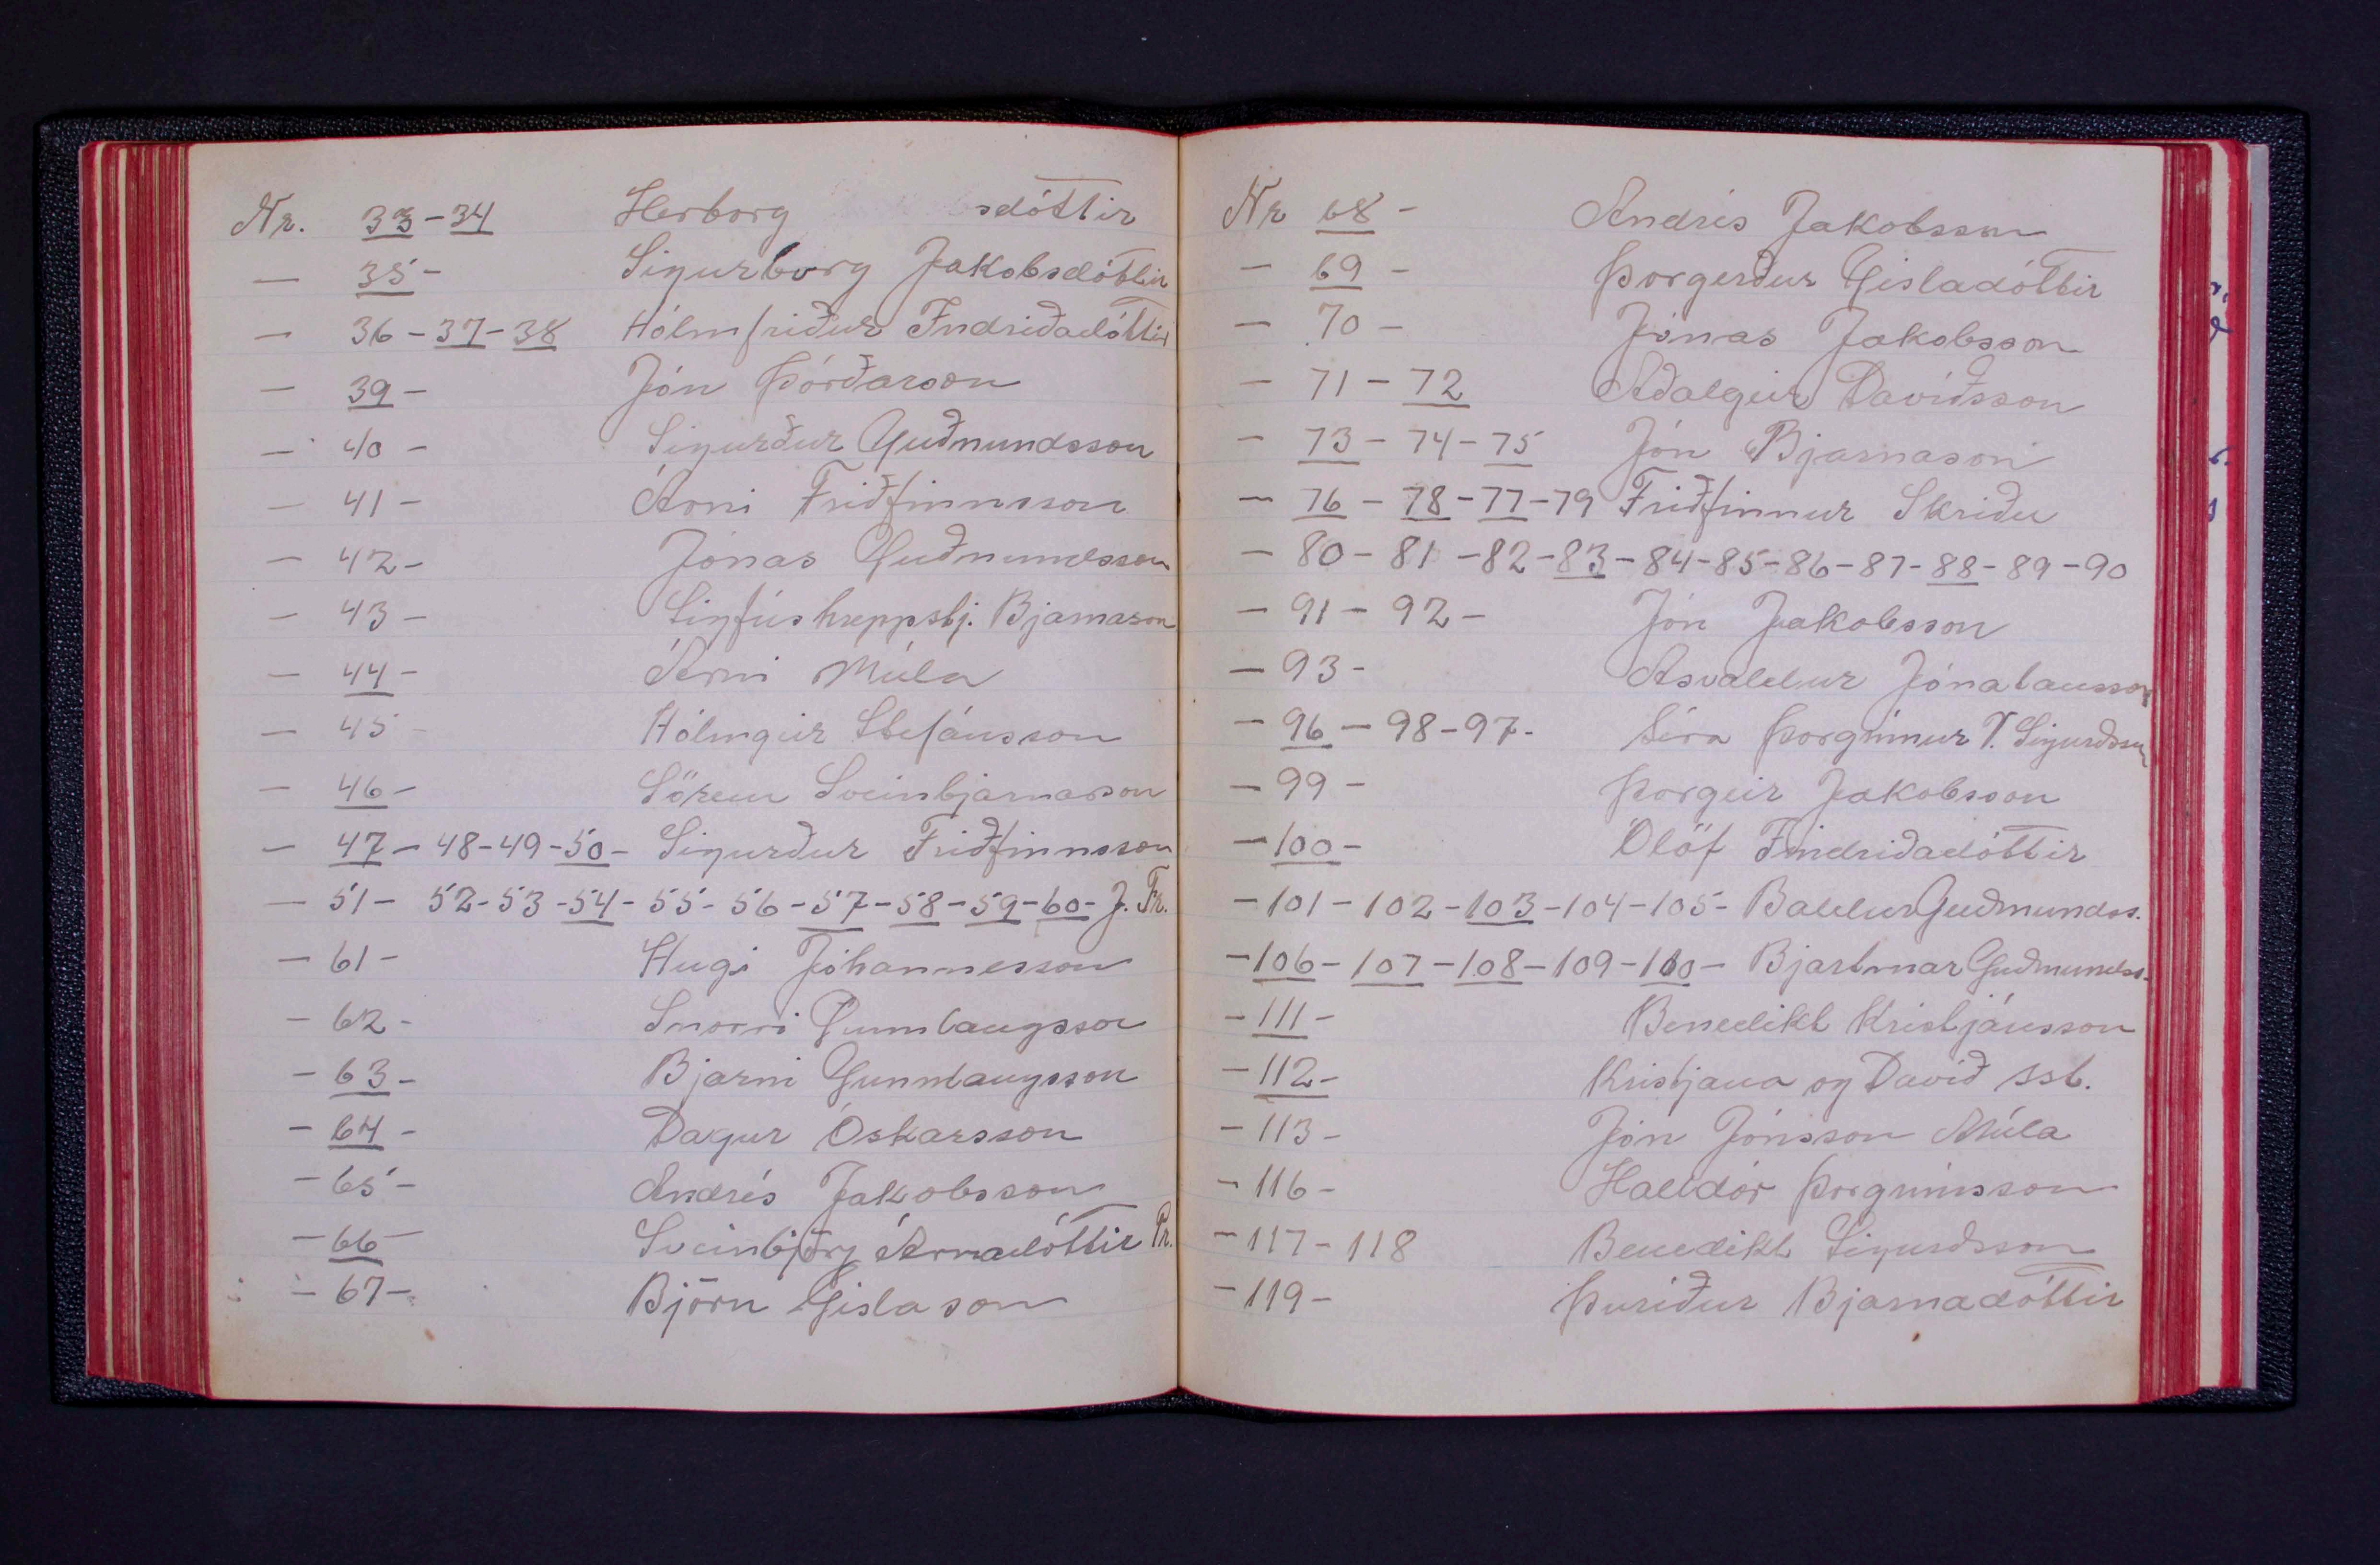 Nr. 33-34 Herborg sdóttir
— 35- Sigurborg Jakobsdóttir
— 36-37-38 Hólmfriður Indriðadóttir
— 39- Jón Þórðarson
— 40- Sigurður Guðmundsson
— 41- Árni Friðfinnsson
— 42- Jónas Guðmundsson
— 43- Sigfús hreppstj. Bjarnason
— 44- Árni Múla
— 45- Hólmgeir Stefánsson
— 46- Sören Sveinbjarnarson
— 47-48-49-50- Sigurður Friðfinnsson
— 51-52-53-54-55-56-57-58-59-60- J. Fr.
— 61- Hugi Jóhannesson
— 62- Snorri Gunnlaugsson
— 63- Bjarni Gunnlaugsson
— 64- Dagur Óskarsson
— 65- Andrés Jakobsson
— 66- Sveinbjörg Árnadóttir Pr.
— 67- Björn Gislason
Nr 68- Andrés Jakobsson
— 69- Þorgerður Gisladóttir
— 70- Jónas Jakobsson
— 71-72 Aðalgeir Davíðsson
— 73-74-75 Jón Bjarnason
— 76-78-77-79 Friðfinnur Skriðu
— 80-81-82-83-84-85-86-87-88-89-90
— 91-92- Jón Jakobsson
— 93- Asvaldur Jónatansson
— 96-98-97- Séra Þorgrímur V. Sigurðsson
— 99- Þorgeir Jakobsson
— 100- Ólöf Indriðadóttir
— 101-102-103-104-105- Baldur Guðmundss.
— 106-107-108-109-110- Bjartmar Guðmundss.
— 111- Benedikt Kristjánsson
— 112- Kristjana og Davið sst.
— 113- Jón Jónsson Múla
— 116- Halldór Þorgrímsson
— 117-118 Benedikt Sigurðsson
— 119- Þuriður Bjarnadóttir